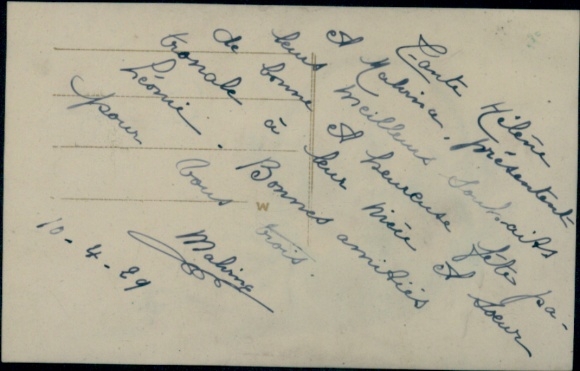 Tante Hélène
et Malvina, présentent
leurs meilleurs souhaits
de bonne et heureuse fête pa-
tronale à leur nièce et soeur
Léonie. Bonnes amitiés
pour vous trois.
Malvina
10-4-29
W